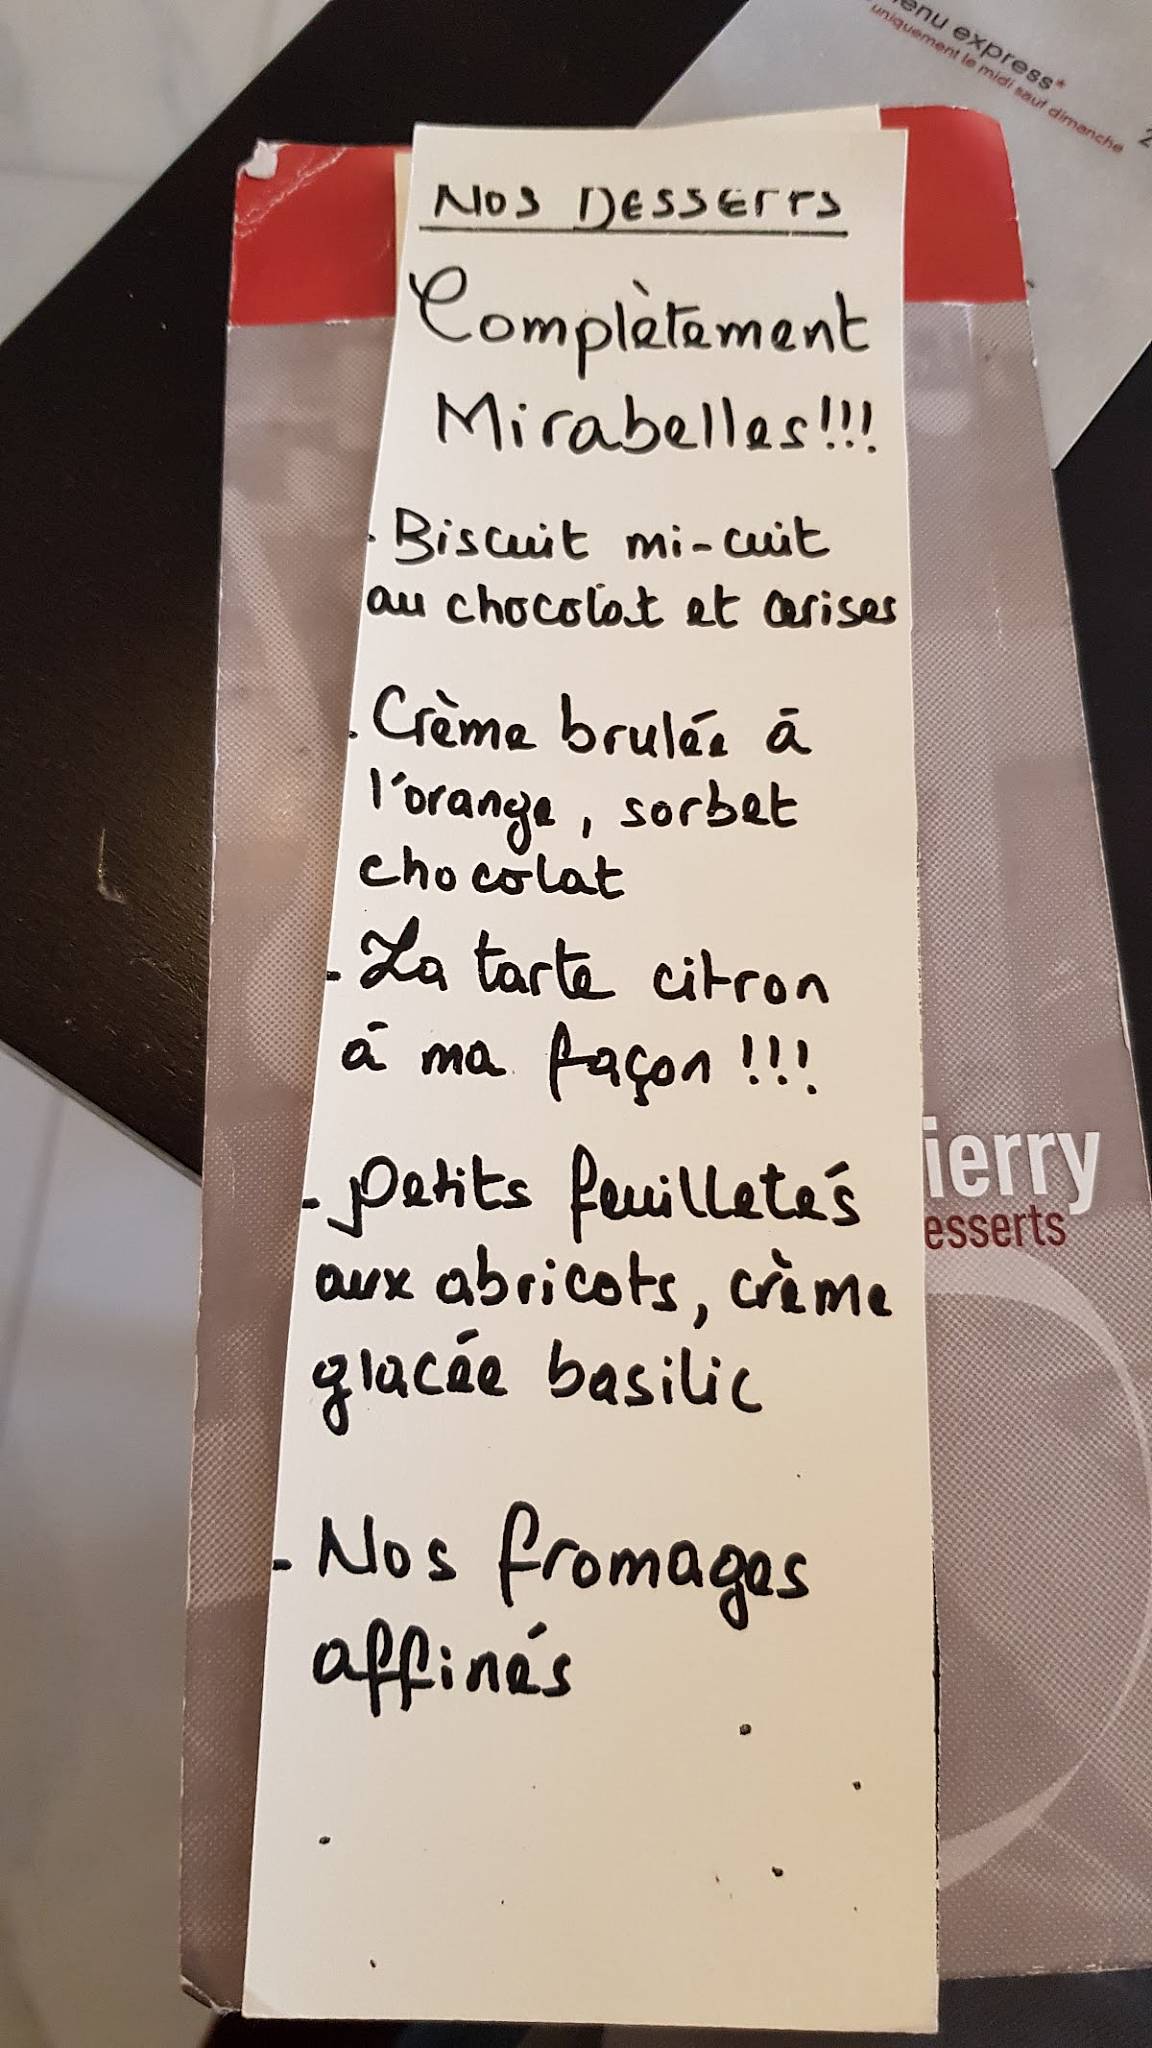 enu express*
uniquement le midi sauf dimanche
2
Nos Desserts
Complètement
Mirabelles!!!
. Biscuit mi-cuit
au chocolat et cerises
. Crème brulée à
l'orange, sorbet
chocolat
- La tarte citron
à ma façon !!!
- Petits feuilletés
aux abricots, crème
glacée basilic
- Nos fromages
affinés
ierry
esserts